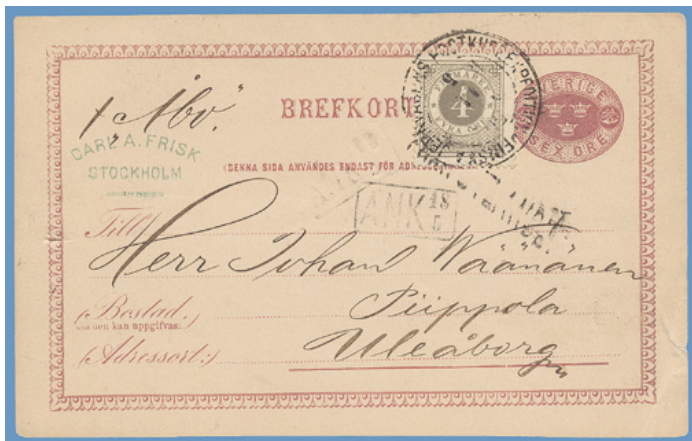 p "Åbo".
BREFKORT
SVERIGE
SEX ÖRE
FRIMÄRKE
4
CARL A. FRISK
STOCKHOLM
(DENNA SIDA ANVÄNDES ENDAST FÖR
ANK 18 5
Till
Herr Johan Väänänen
(Bostad.)
om den kan uppgifvas:
Piippola
(Adressort:)
Uleåborg